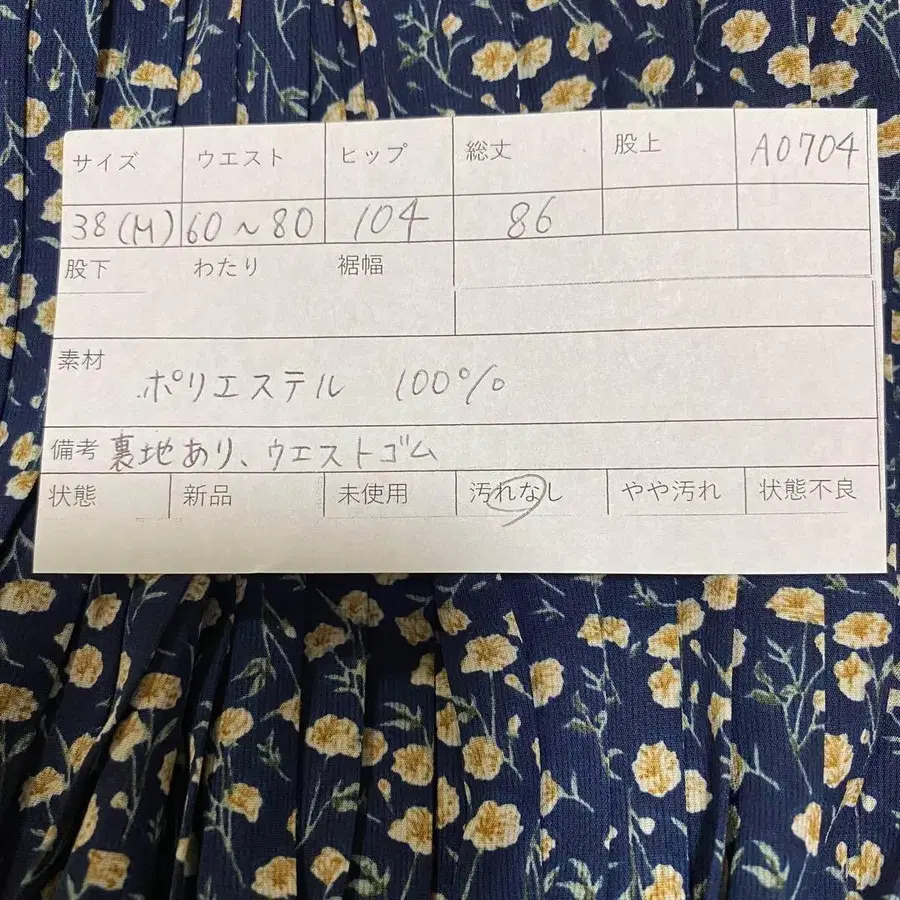 サイズ ウエスト ヒップ 総丈 股上 A0704
38(M) 60～80 104 86
股下 わたり 裾幅
素材
ポリエステル 100%
備考 裏地あり、ウエストゴム
状態 新品 未使用 汚れなし やや汚れ 状態不良